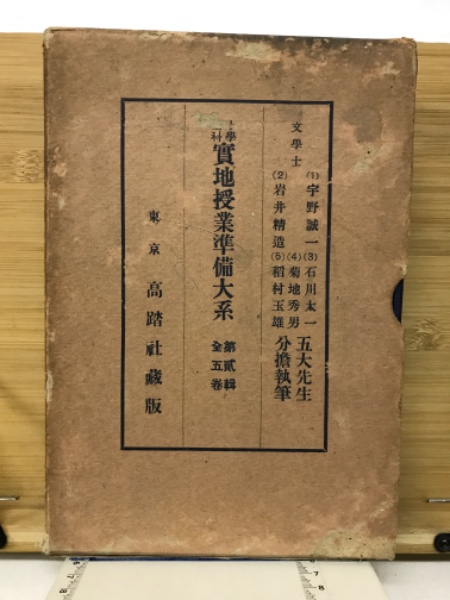 文學士
(1)宇野誠一(3)石川太一
(4)菊地秀男
(2)岩井精造(5)稻村玉雄
五大先生
分擔執筆
學科
實地授業準備大系
第貳輯
全五卷
東京 高踏社藏版